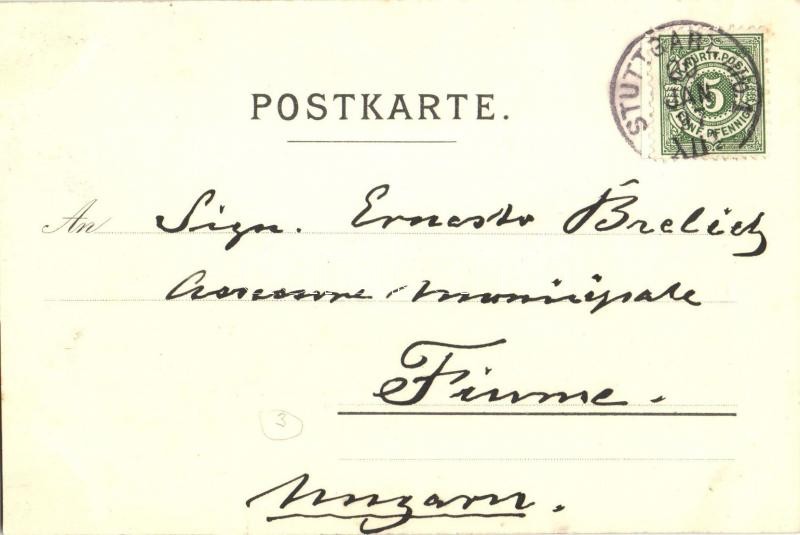 POSTKARTE.
STUTTGART
K. WÜRTT. POST
5
FÜNF PFENNIG
An Sign. Ernesto Brelich
Assessore Municipale
Fiume.
3
Ungarn.